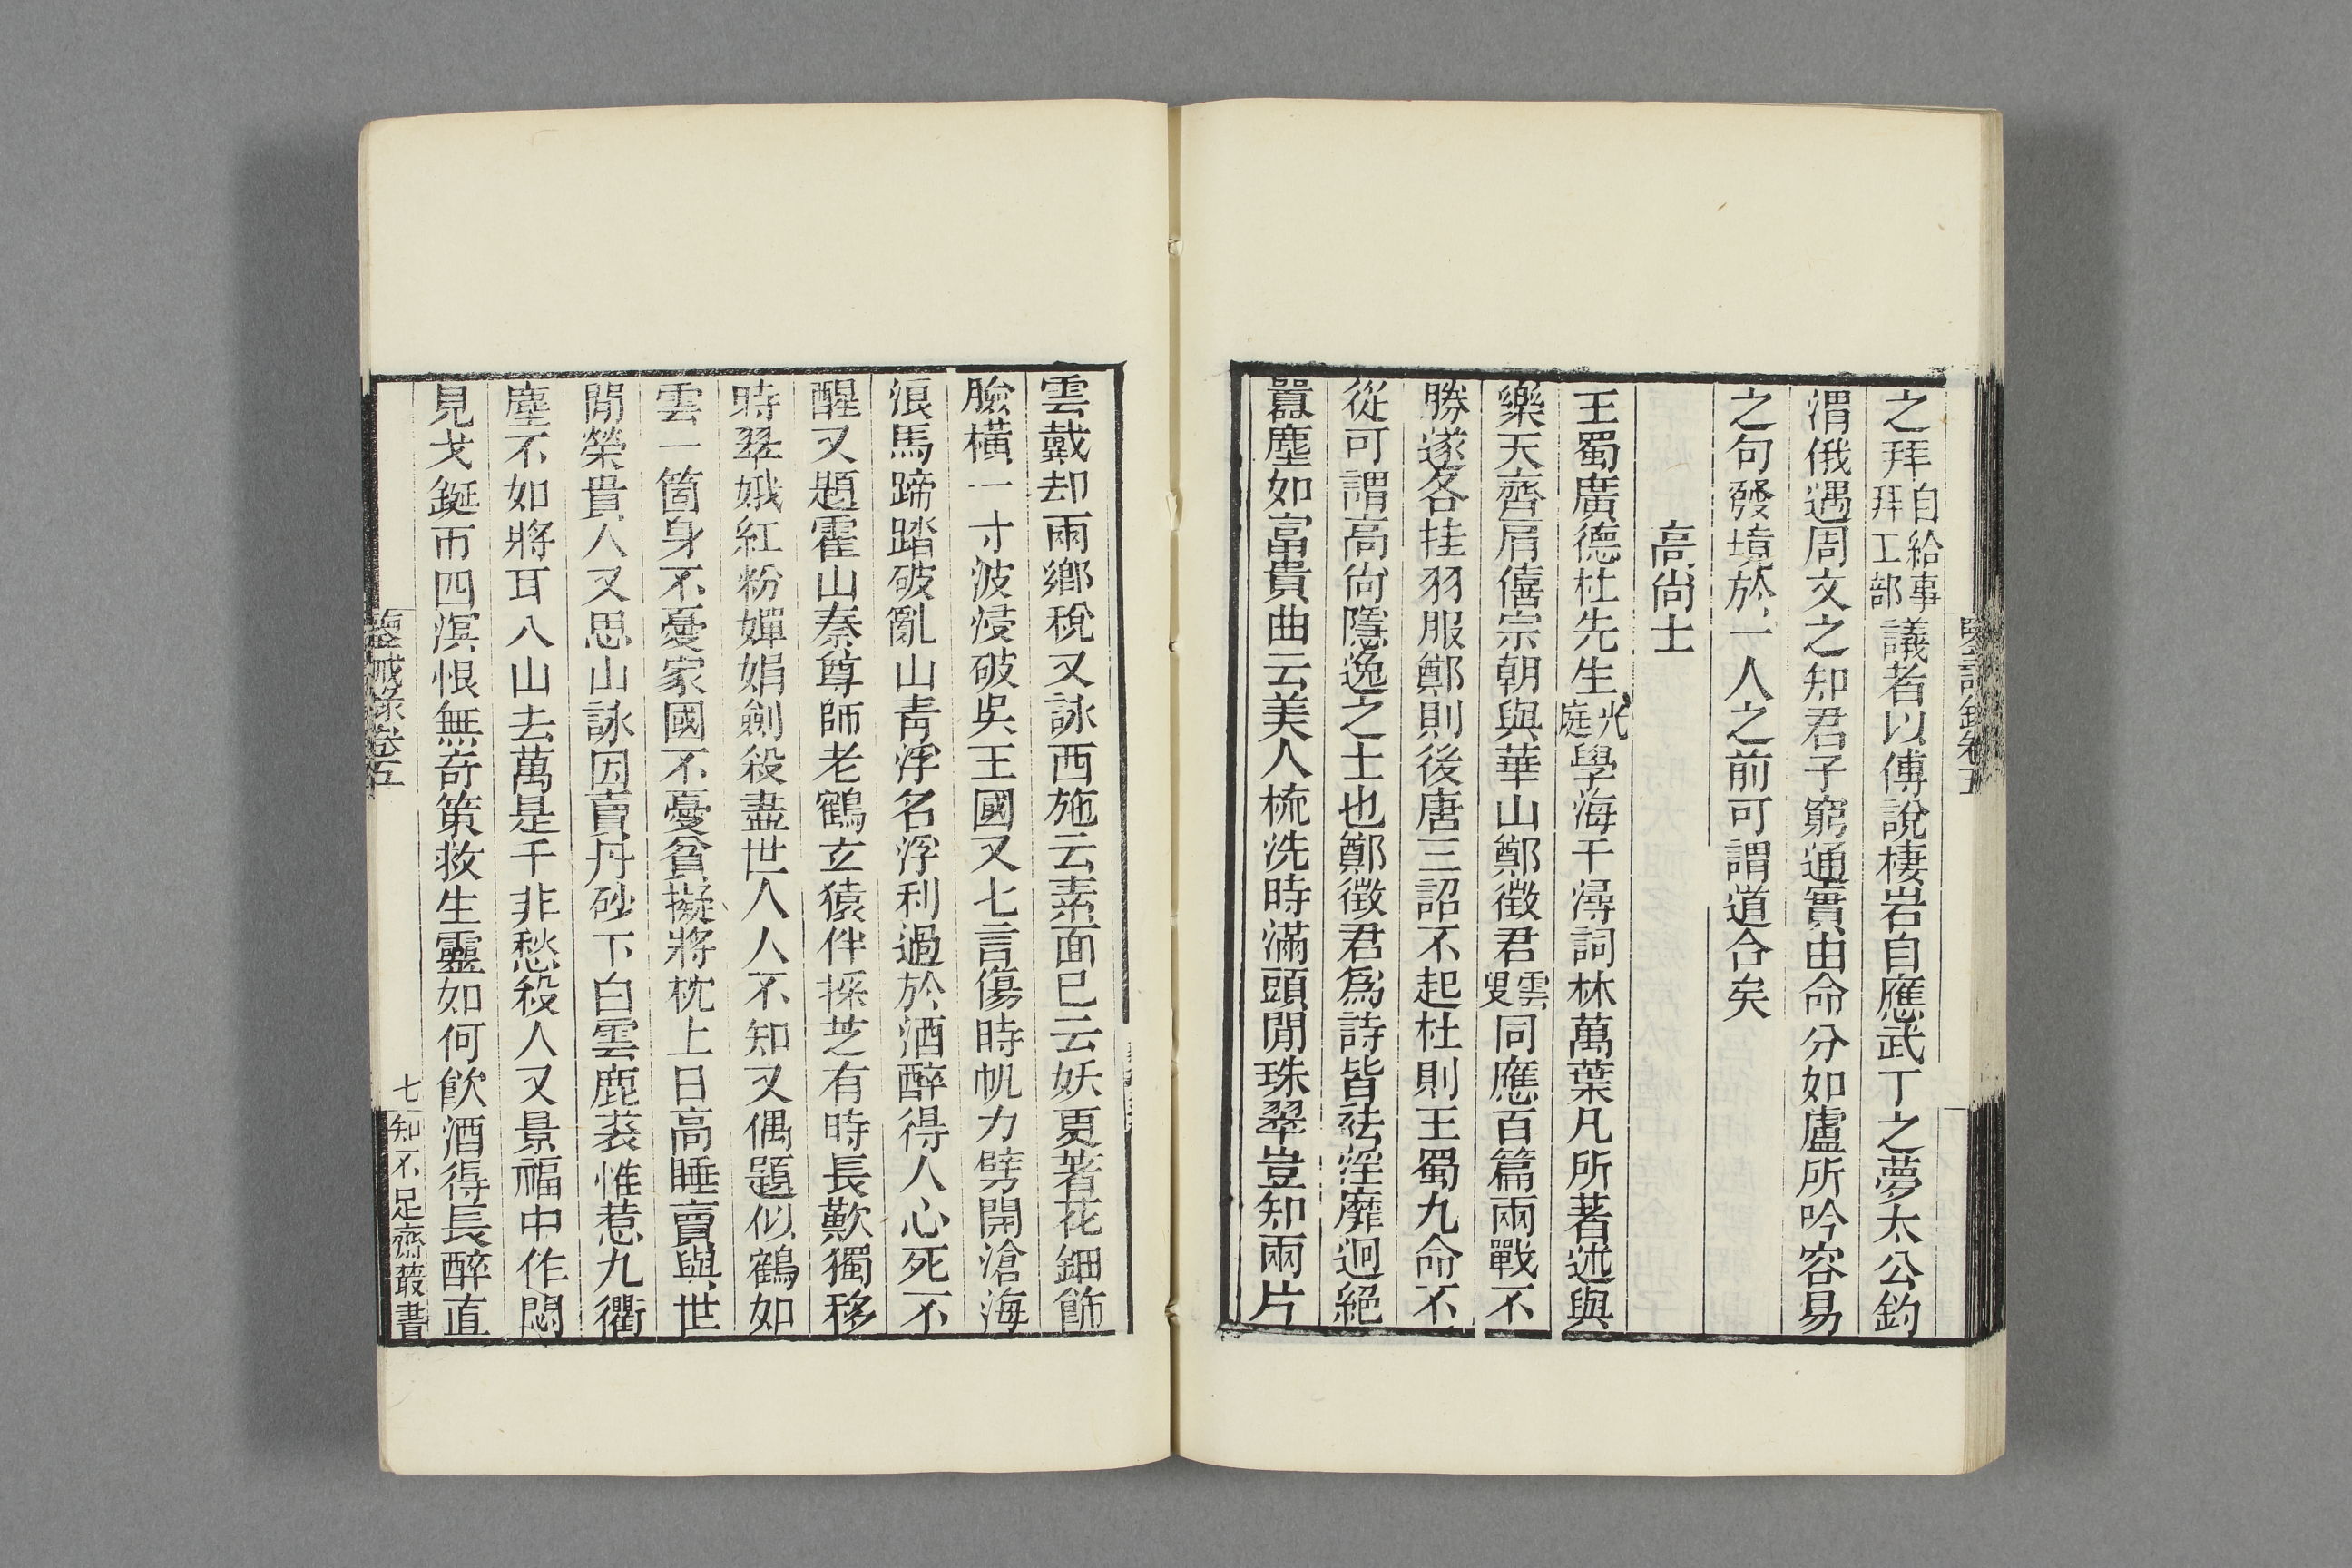 之拜自給事拜工部議者以傅說棲岩自應武丁之夢太公釣
渭俄遇周文之知君子窮通實由命分如盧所吟容易
之句發境於一人之前可謂道合矣
高尚士
王蜀廣德杜先生光庭學海千潯詞林萬葉凡所著述與
樂天齊肩僖宗朝與華山鄭徵君雲叟同應百篇兩戰不
勝遂各挂羽服鄭則後唐三詔不起杜則王蜀九命不
從可謂高尚隱逸之士也鄭徵君爲詩皆祛淫靡迥絕
囂塵如富貴曲云美人梳洗時滿頭閒珠翠豈知兩片
雲戴却兩鄉稅又詠西施云素面已云妖更著花鈿飾
臉橫一寸波浸破吳王國又七言傷時帆力劈開滄海
浪馬蹄踏破亂山青浮名浮利過於酒醉得人心死不
醒又題霍山秦尊師老鶴玄猿伴採芝有時長歎獨移
時翠娥紅粉嬋娟劍殺盡世人人不知又偶題似鶴如
雲一箇身不憂家國不憂貧擬將枕上日高睡賣與世
閒榮貴人又思山詠因賣丹砂下白雲鹿裘惟惹九衢
塵不如將耳入山去萬是千非愁殺人又景福中作悶
見戈鋋帀四溟恨無奇策救生靈如何飲酒得長醉直
鑒誡錄卷五
七
知不足齋叢書